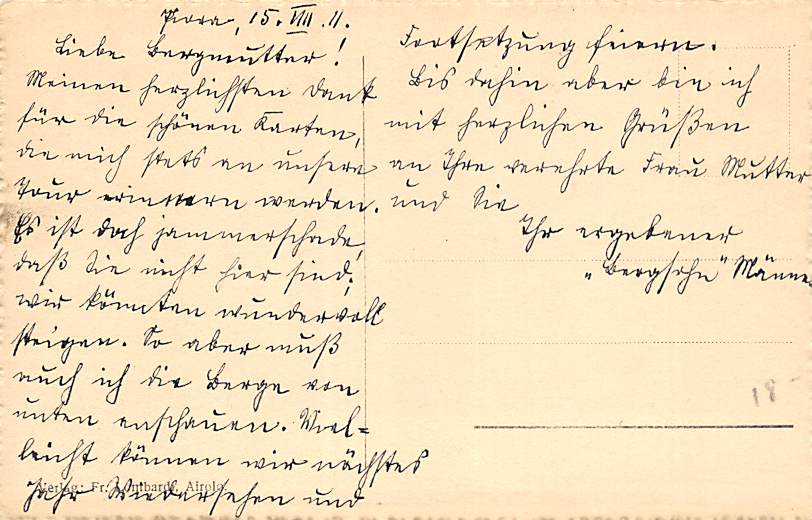 Piora, 15. VIII. 11.
Liebe Bergmutter!
Meinen herzlichsten Dank
für die schönen Karten,
die mich stets an unsere
Tour erinnern werden.
Es ist doch jammerschade,
daß Sie nicht hier sind;
wir könnten wundervoll
steigen. So aber muß
auch ich die Berge von
unten anschauen. Viel=
leicht können wir nächstes
Jahr Wiedersehen und
Fortsetzung feiern.
Bis dahin aber bin ich
mit herzlichen Grüßen
an Ihre verehrte Frau Mutter
und Sie
Ihr ergebener
„Bergsohn" Männe.
18
Verlag: Fr. Lombardi, Airolo.